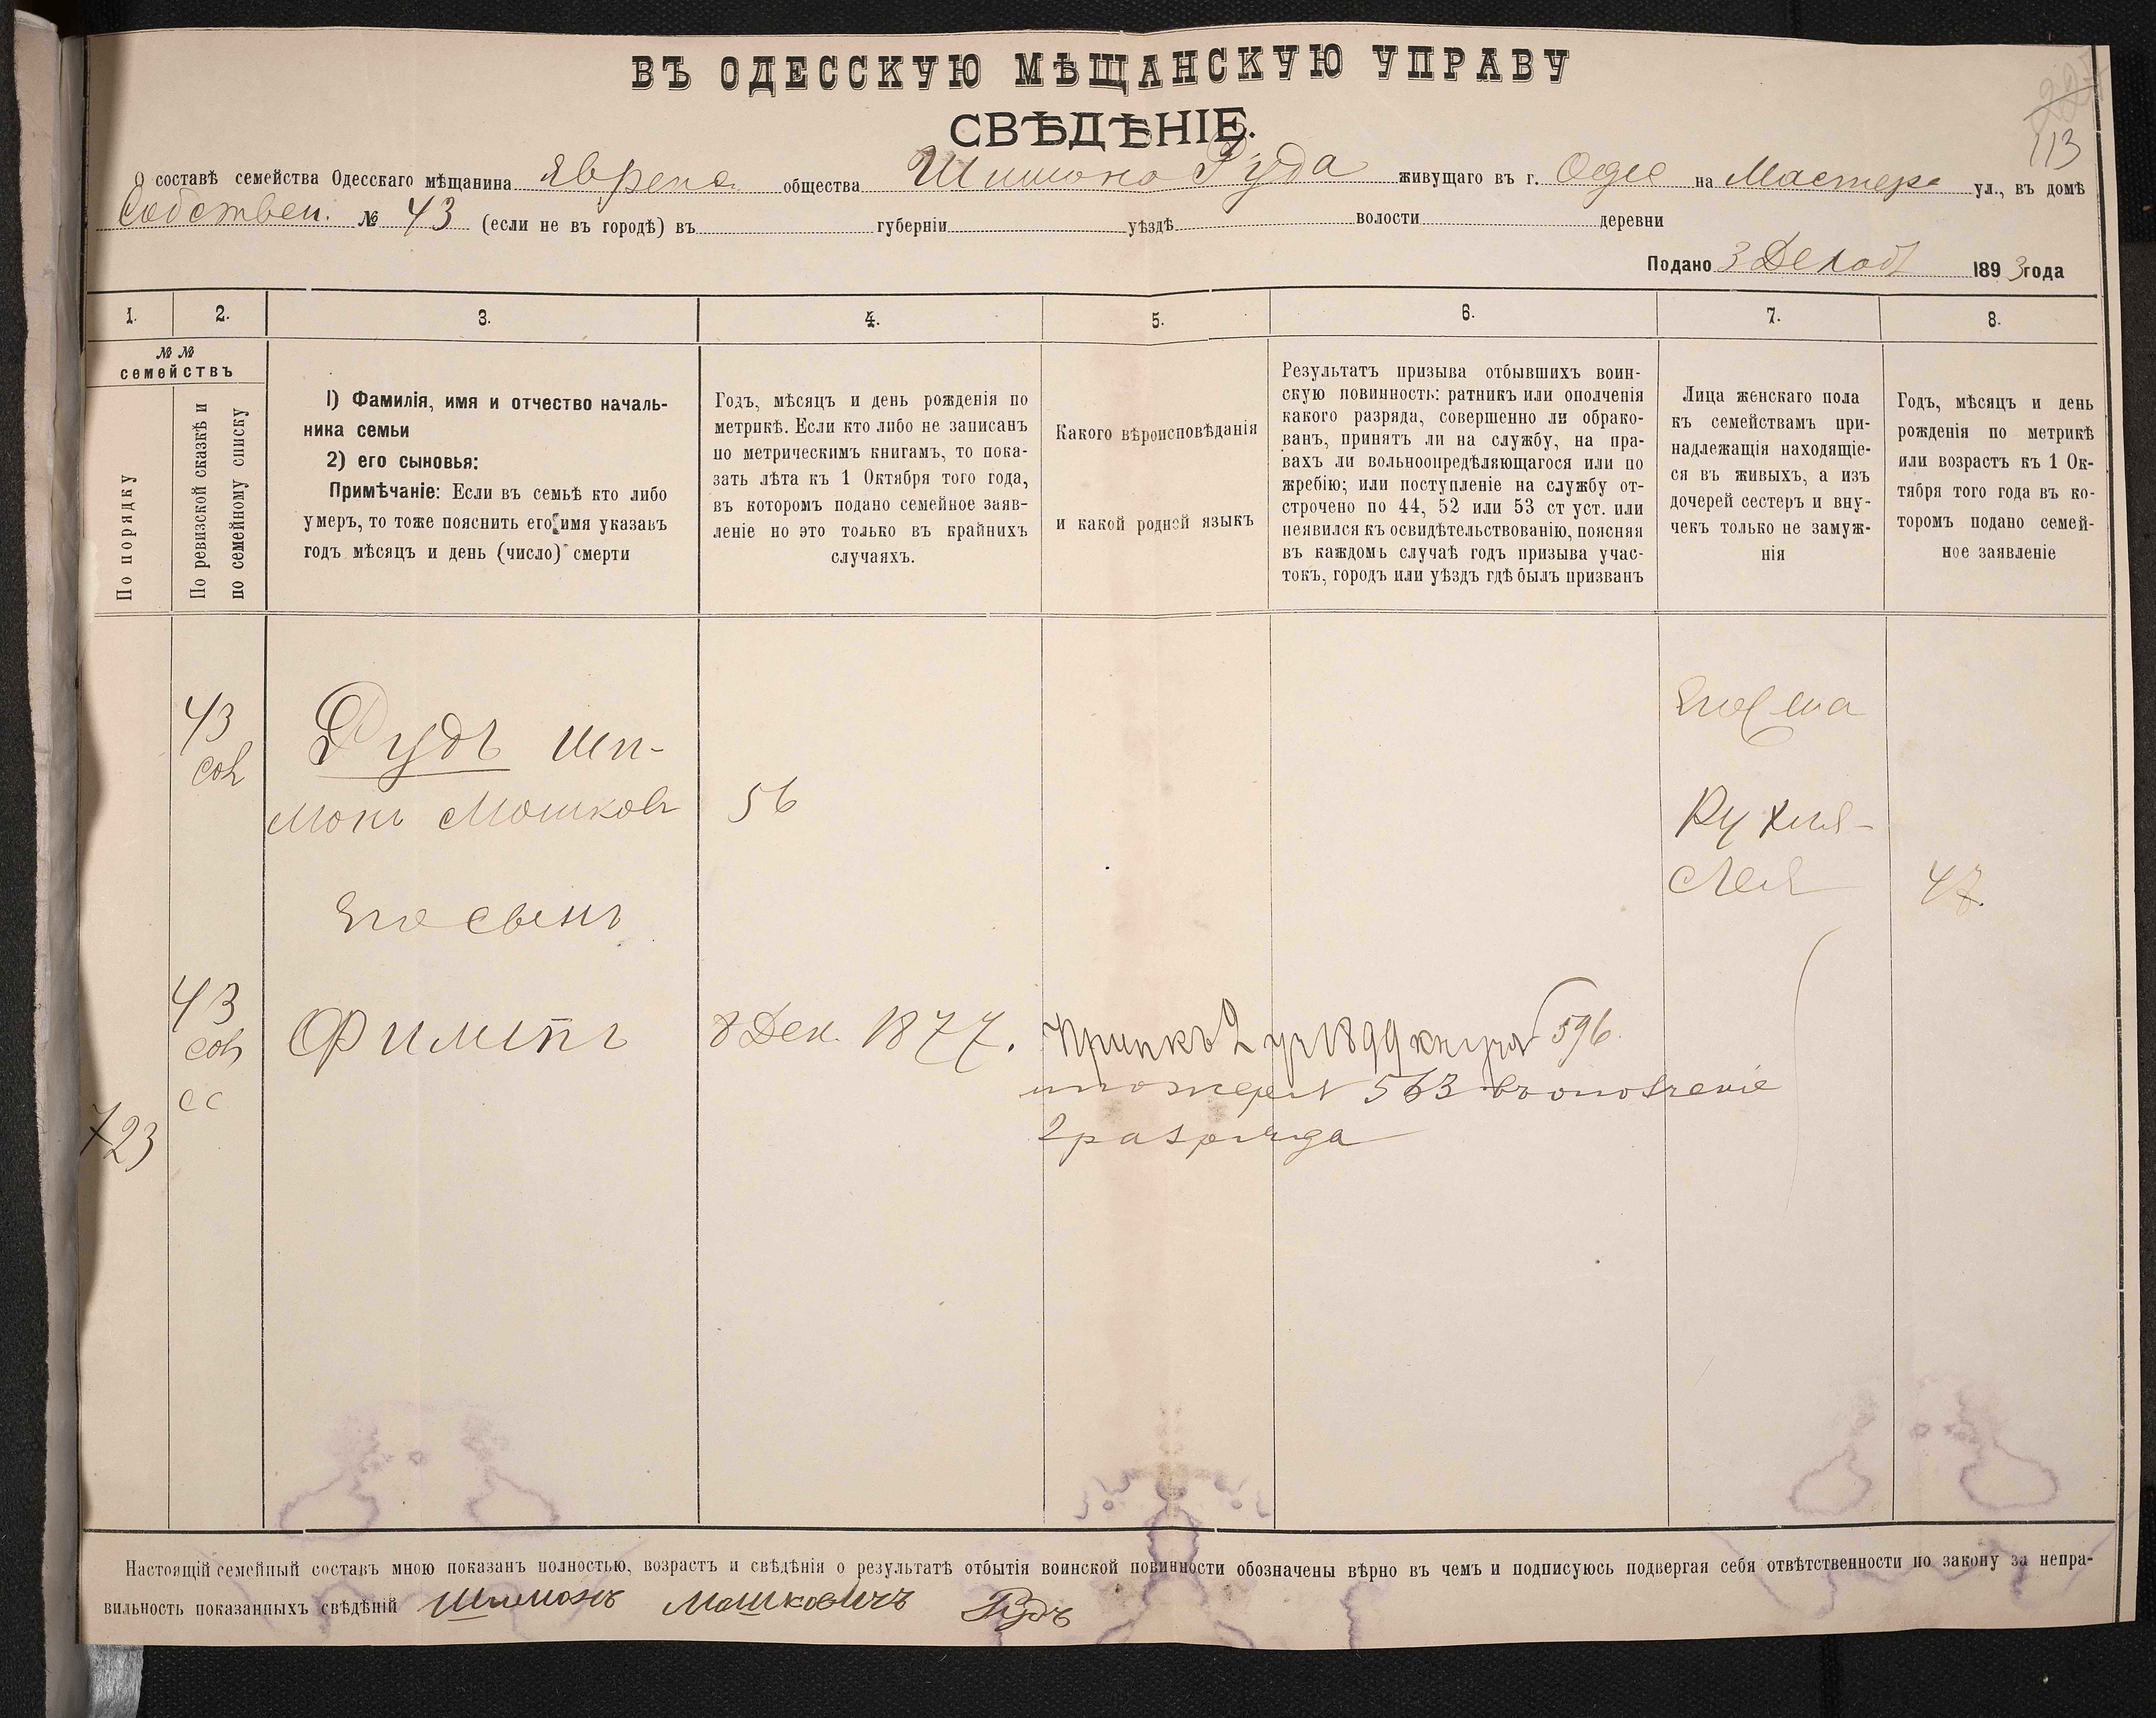 ВЪ ОДЕССКУЮ МѢЩАНСКУЮ УПРАВУ
СВѢДѢНІЕ.
113
О составѣ семейства Одесскаго мѣщанина Еврея общества Шимона Руда живущаго въ г. Одес на Мастерс ул., въ домѣ
Собствен. № 43 (если не въ городѣ) въ губерніи уѣздѣ волости деревни
Подано 3 Декаб 1893 года
1. 2. 3. 4. 5. 6. 7. 8.
№ № семействъ
По порядку
По ревизской сказкѣ и по семейному списку
1) Фамилія, имя и отчество началь-
ника семьи
2) его сыновья:
Примѣчаніе: Если въ семьѣ кто либо
умеръ, то тоже пояснить его имя указавъ
годъ мѣсяцъ и день (число) смерти
Годъ, мѣсяцъ и день рожденія по
метрикѣ. Если кто либо не записанъ
по метрическимъ книгамъ, то пока-
зать лѣта къ 1 Октября того года,
въ которомъ подано семейное заяв-
леніе но это только въ крайнихъ
случаяхъ.
Какого вѣроисповѣданія
и какой родной языкъ
Результатъ призыва отбывшихъ воин-
скую повинность: ратникъ или ополченія
какого разряда, совершенно ли обрако-
ванъ, принятъ ли на службу, на пра-
вахъ ли вольноопредѣляющагося или по
жребію; или поступленіе на службу от-
строчено по 44, 52 или 53 ст уст. или
неявился къ освидѣтельствованію, поясняя
въ каждомъ случаѣ годъ призыва учас-
токъ, городъ или уѣздъ гдѣ былъ призванъ
Лица женскаго пола
къ семействамъ при-
надлежащія находящіе-
ся въ живыхъ, а изъ
дочерей сестеръ и вну-
чекъ только не замуж-
нія
Годъ, мѣсяцъ и день
рожденія по метрикѣ
или возрастъ къ 1 Ок-
тября того года въ ко-
торомъ подано семей-
ное заявленіе
43 Рудъ Ши-
монъ Мошковъ 56
Его жена
Рухля-
Лея 47.
Его сынъ
43 Филипъ 8 Дек. 1877.
2 уч 1899 596
563 въ ополченіе
2 разряда
723
Настоящій семейный составъ мною показанъ полностью, возрастъ и свѣдѣнія о результатѣ отбытія воинской повинности обозначены вѣрно въ чемъ и подписуюсь подвергая себя отвѣтственности по закону за непра-
вильность показанныхъ свѣдѣній Шимонъ Мошковичъ Рудъ